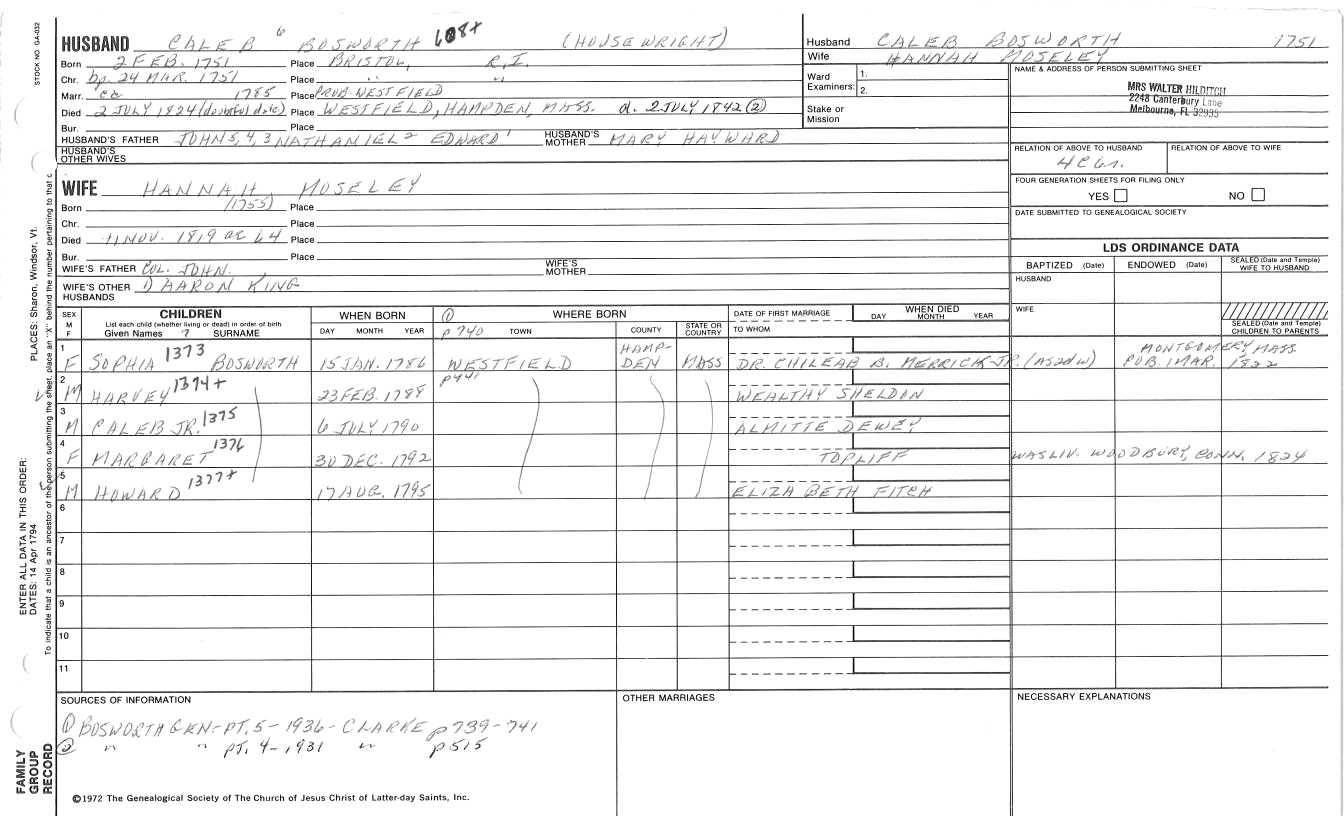 STOCK NO. GA-032
HUSBAND CALEB 6 BOSWORTH (HOUSEWRIGHT)
Born 2 FEB. 1751 Place BRISTOL, R.I.
Chr. bp. 24 MAR. 1751 Place " "
Marr. ca 1785 Place PROB. WESTFIELD
Died 2 JULY 1824 (doubtful date) Place WESTFIELD, HAMPDEN, MASS. d. 2 JULY 1842 (2)
Bur. Place
HUSBAND'S FATHER JOHN 5, 4, 3 NATHANIEL 2 EDWARD 1 HUSBAND'S MOTHER MARY HAYWARD
HUSBAND'S OTHER WIVES
WIFE HANNAH MOSELEY
Born (1755) Place
Chr. Place
Died 11 NOV. 1819 ae 64 Place
Bur. Place
WIFE'S FATHER COL. JOHN. WIFE'S MOTHER
WIFE'S OTHER HUSBANDS 1) AARON KING
Husband CALEB BOSWORTH 1751
Wife HANNAH MOSELEY
Ward 1.
Examiners: 2.
Stake or Mission
NAME & ADDRESS OF PERSON SUBMITTING SHEET
MRS WALTER HILDITCH
2248 Canterbury Lane
Melbourne, FL 32935
RELATION OF ABOVE TO HUSBAND RELATION OF ABOVE TO WIFE
FOUR GENERATION SHEETS FOR FILING ONLY
YES NO
DATE SUBMITTED TO GENEALOGICAL SOCIETY
LDS ORDINANCE DATA
BAPTIZED (Date) ENDOWED (Date) SEALED (Date and Temple) WIFE TO HUSBAND
HUSBAND
WIFE
SEALED (Date and Temple) CHILDREN TO PARENTS
SEX M F CHILDREN WHEN BORN (1) WHERE BORN DATE OF FIRST MARRIAGE WHEN DIED
List each child (whether living or dead) in order of birth
Given Names 7 SURNAME DAY MONTH YEAR p 740 TOWN COUNTY STATE OR COUNTRY TO WHOM DAY MONTH YEAR
1 F SOPHIA 1373 BOSWORTH 15 JAN. 1786 WESTFIELD HAMPDEN MASS DR. CHILEAB B. MERRICK JR. (AS 2d W) MONTGOMERY, MASS PUB. 1 MAR. 1822
2 M HARVEY 1374+ 23 FEB. 1788 p 441 WEALTHY SHELDON
3 M CALEB JR. 1375 6 JULY 1790 ALMITTE DEWEY
4 F MARGARET 1376 30 DEC. 1792 TOPLIFF WAS LIV. WOODBURY, CONN. 1824
5 M HOWARD 1377+ 17 AUG. 1795 ELIZABETH FITCH
6
7
8
9
10
11
SOURCES OF INFORMATION OTHER MARRIAGES NECESSARY EXPLANATIONS
(1) BOSWORTH GEN - PT. 5 - 1936 - CLARKE p 739-741
(2) " " PT. 4 - 1931 " p 515
©1972 The Genealogical Society of The Church of Jesus Christ of Latter-day Saints, Inc.
FAMILY GROUP RECORD
ENTER ALL DATA IN THIS ORDER:
DATES: 14 Apr 1794
PLACES: Sharon, Windsor, Vt.
To indicate that a child is an ancestor of the person submitting the sheet, place an "X" behind the number pertaining to that c